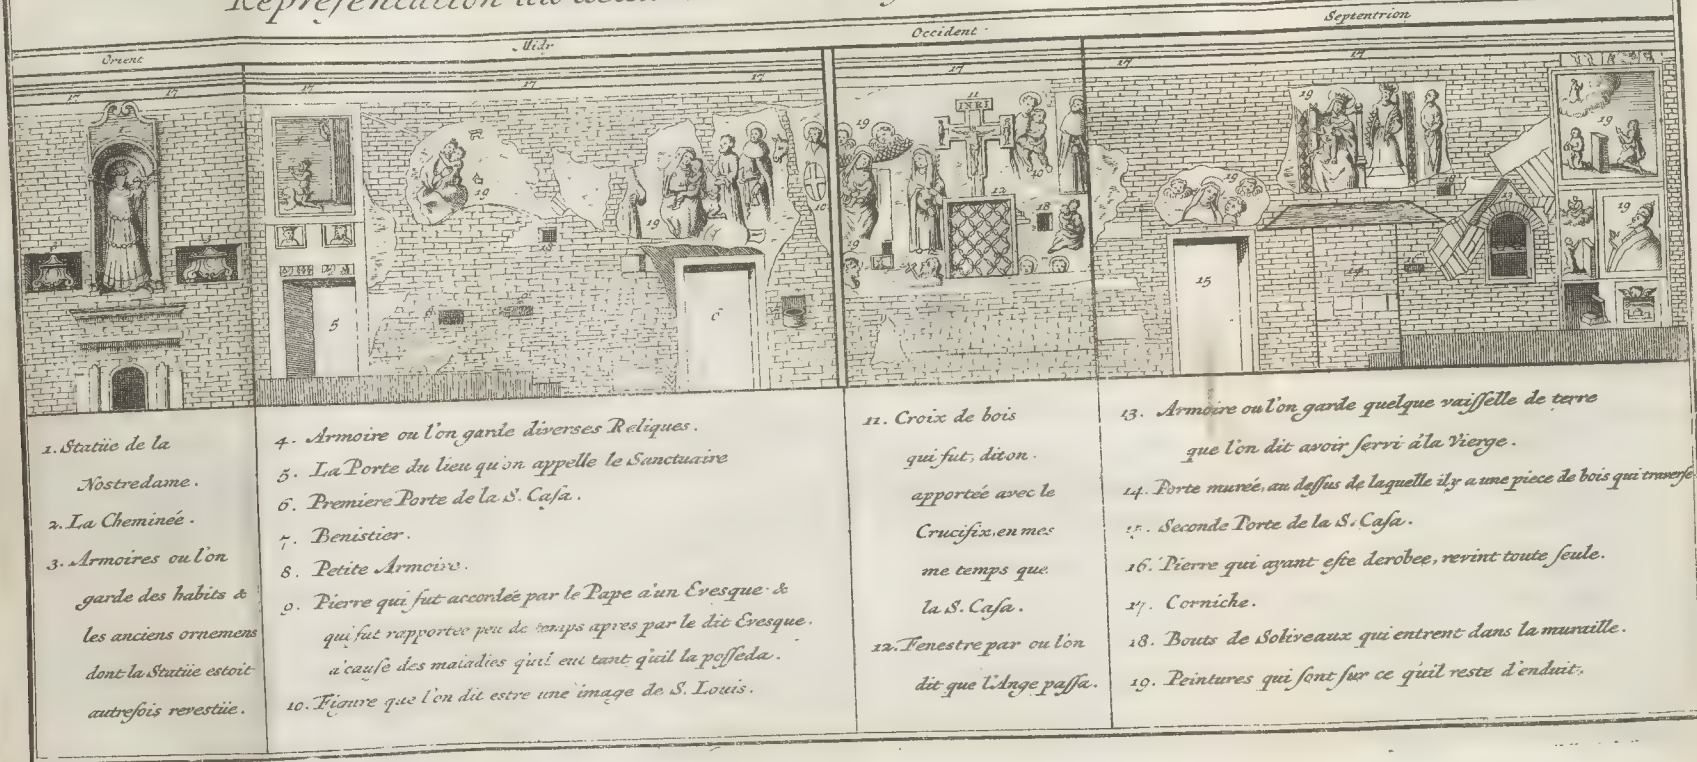 Orient
Midy
Occident
Septentrion
17 17 17 17 17 17 17 17 17
INRI
1. Statüe de la
Nostredame.
2. La Cheminée.
3. Armoires ou l'on
garde des habits &
les anciens ornemens
dont la Statüe estoit
autrefois revestüe.
4. Armoire ou l'on garde diverses Reliques.
5. La Porte du lieu qu'on appelle le Sanctuaire
6. Premiere Porte de la S. Casa.
7. Benistier.
8. Petite Armoire.
9. Pierre qui fut accordée par le Pape a'un Evesque &
qui fut rapportee peu de temps apres par le dit Evesque.
a'cause des maladies qu'il eut tant qu'il la posseda.
10. Figure que l'on dit estre une image de S. Louis.
11. Croix de bois
qui fut, diton.
apporteé avec le
Crucifix, en mes
me temps que
la S. Casa.
12. Fenestre par ou l'on
dit que l'Ange passa.
13. Armoire ou l'on garde quelque vaisselle de terre
que l'on dit avoir servi àla Vierge.
14. Porte mureé, au dessus de laquelle il y a une piece de bois qui traverse
15. Seconde Porte de la S. Casa.
16. Pierre qui ayant esté derobee, revint toute seule.
17. Corniche.
18. Bouts de Soliveaux qui entrent dans la muraille.
19. Peintures qui sont sur ce qu'il reste d'enduit.